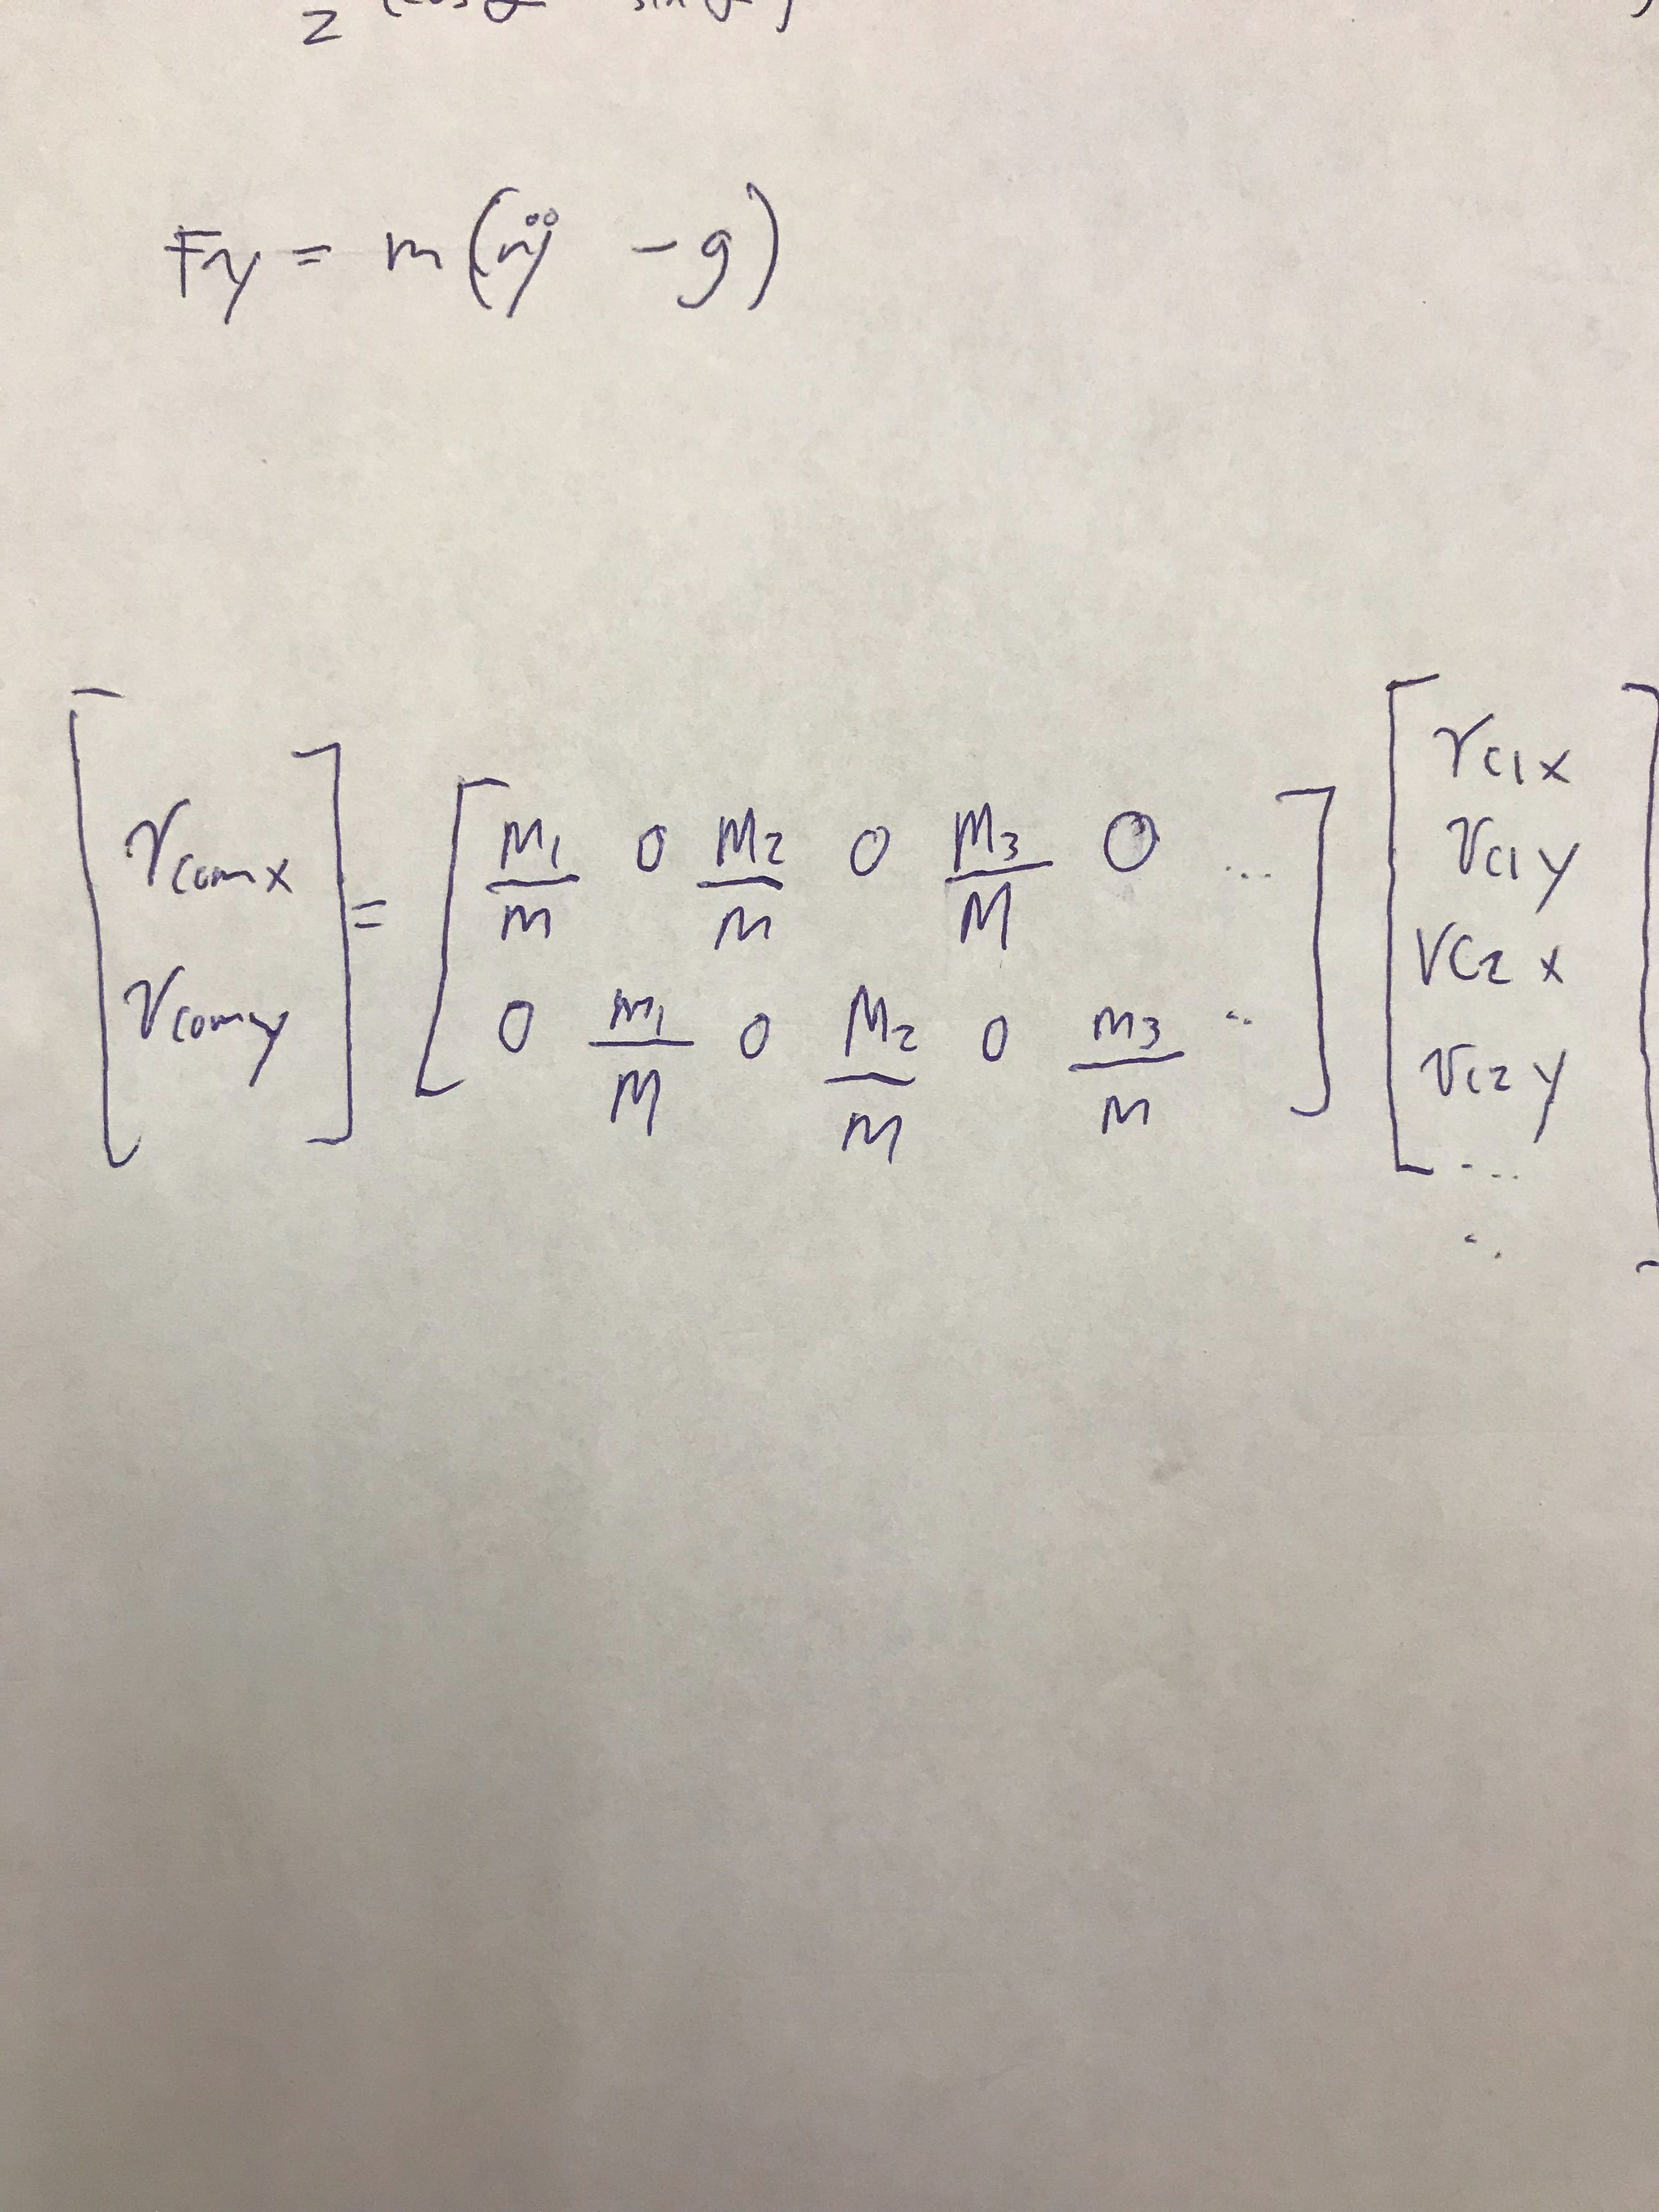 2
Fy = m(ÿ - g)
[rcomx rcomy] = [m1/m 0 m2/m 0 m3/M 0 ... ; 0 m1/M 0 M2/m 0 m3/m ..] [rc1x rc1y rc2x rc2y ... ..]